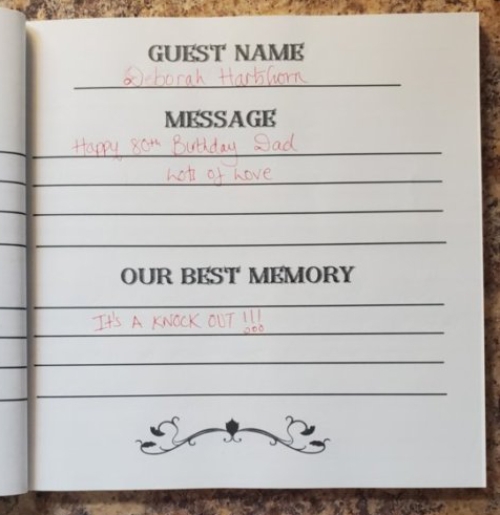 GUEST NAME
Deborah Hartshorn
MESSAGE
Happy 80th Birthday Dad
Lots of Love
OUR BEST MEMORY
It's A KNOCK OUT !!!